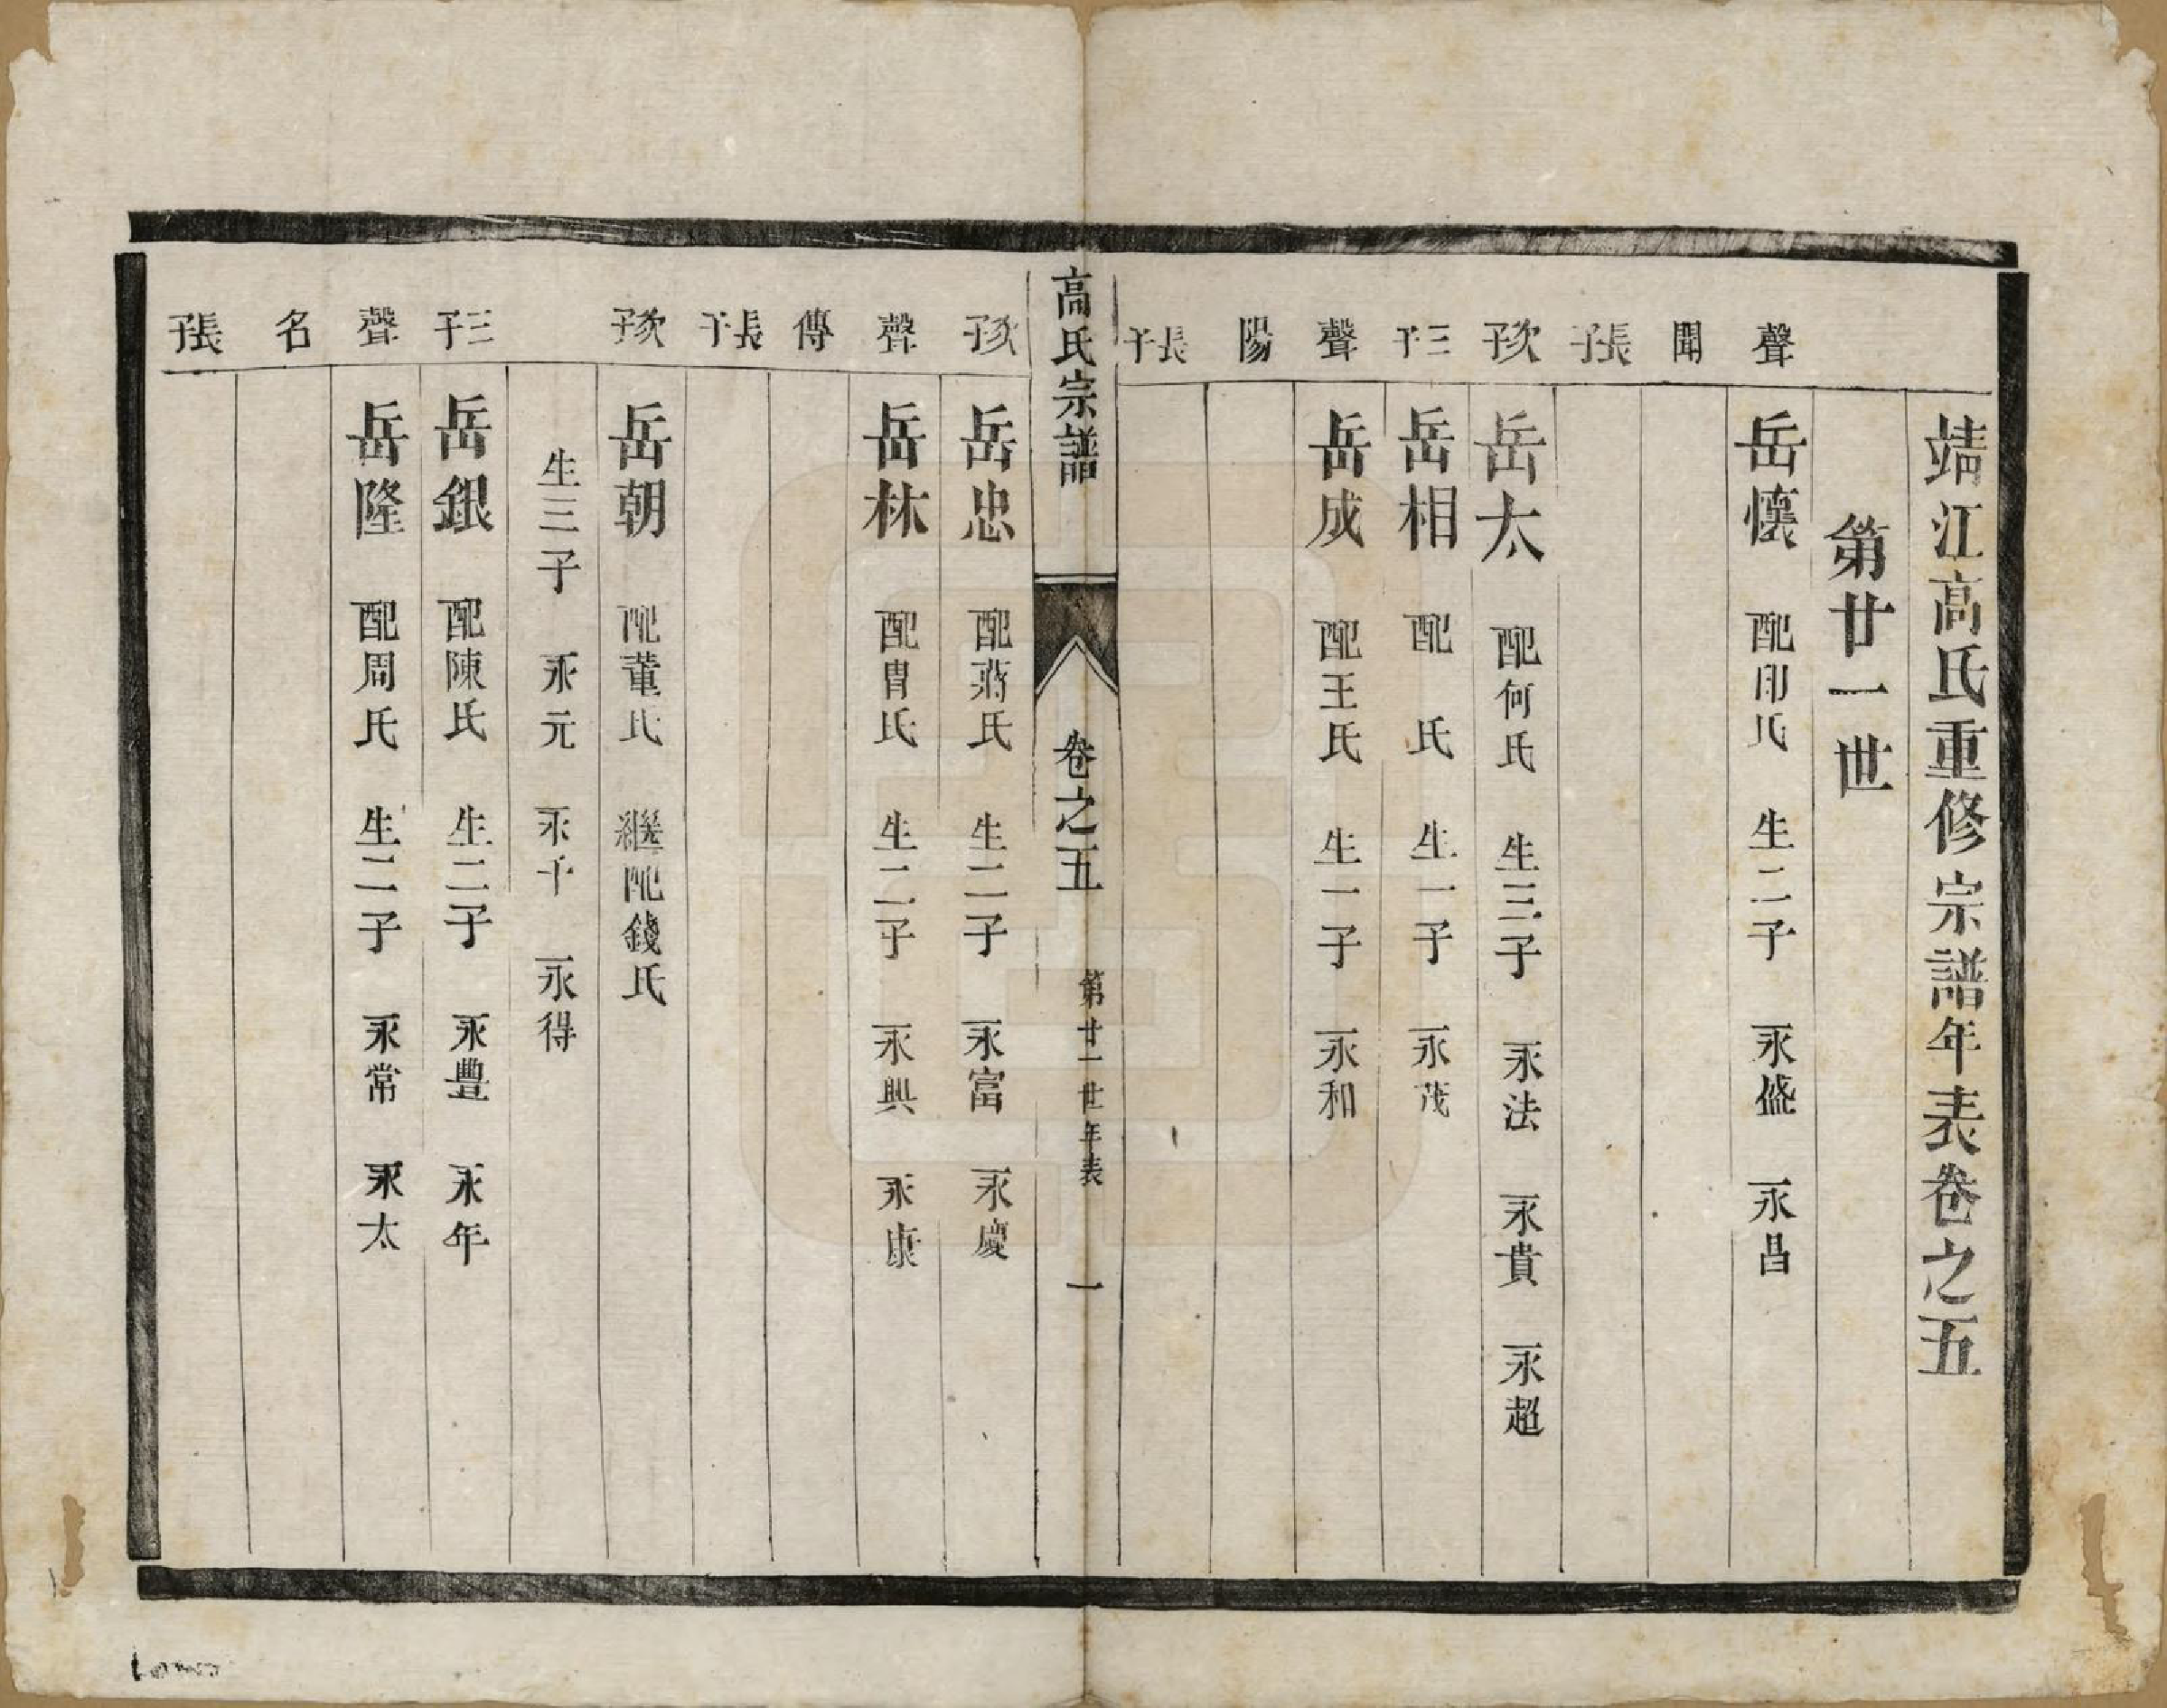 靖江高氏重修宗譜年表卷之五
第廿一世
聲 岳懷 配印氏 生二子 永盛 永昌
聞
長子
次子 岳太 配何氏 生三子 永法 永貴 永超
三子 岳相 配 氏 生一子 永茂
聲 岳成 配王氏 生一子 永和
陽
長子
高氏宗譜 卷之五 第廿一世年表 一
次子 岳忠 配蔣氏 生二子 永富 永慶
聲 岳林 配曹氏 生二子 永興 永康
傳
長子
次子 岳朝 配董氏 繼配錢氏
生三子 永元 永千 永得
三子 岳銀 配陳氏 生二子 永豐 永年
聲 岳隆 配周氏 生二子 永常 永太
名
長子